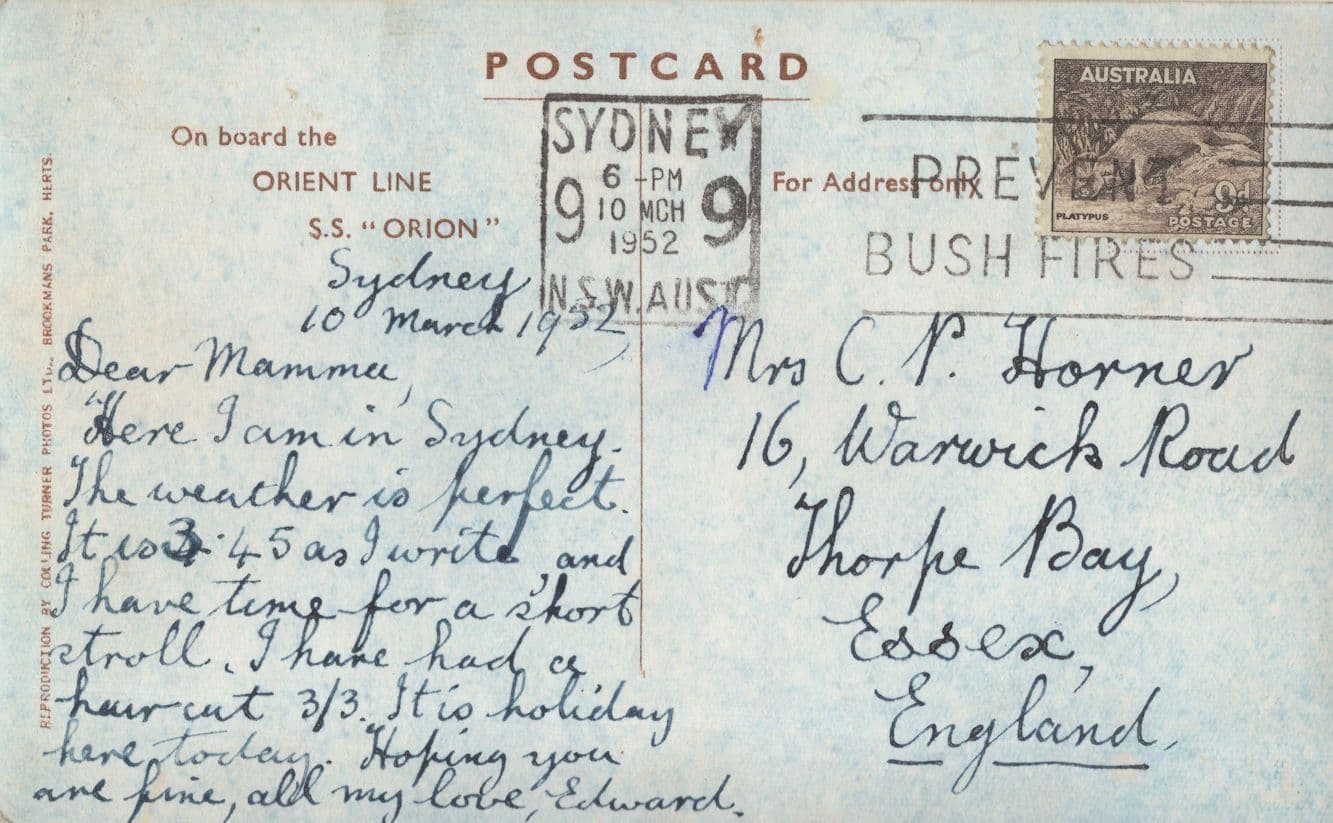 POSTCARD
On board the
ORIENT LINE
S.S. "ORION"
SYDNEY
6 - PM
9 10 MCH 9
1952
N.S.W. AUST
For Address only
PREVENT
BUSH FIRES
AUSTRALIA
9d
PLATYPUS
POSTAGE
REPRODUCTION BY COLLING TURNER PHOTOS LTD., BROOKMANS PARK, HERTS.
Sydney
10 March 1952
Dear Mamma,
Here I am in Sydney.
The weather is perfect.
It is 3.45 as I write, and
I have time for a short
stroll. I have had a
hair cut 3/3. It is holiday
here today. Hoping you
are fine, all my love, Edward.
Mrs C. P. Horner
16, Warwick Road
Thorpe Bay,
Essex,
England.